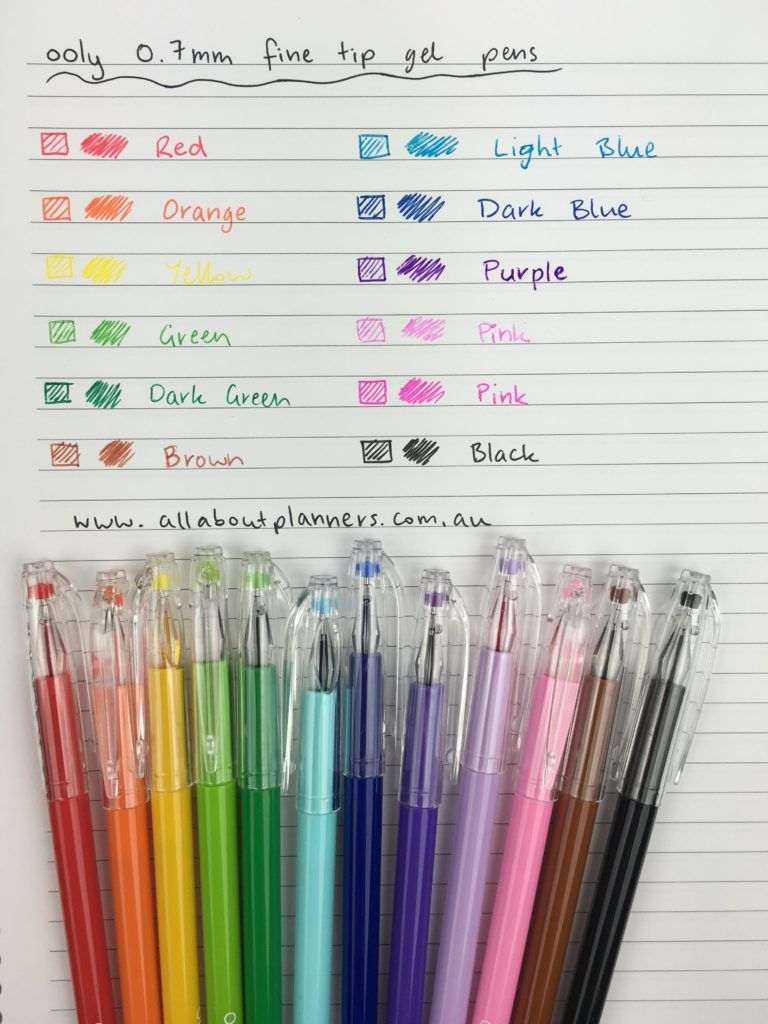 ooly 0.7mm fine tip gel pens
Red Light Blue
Orange Dark Blue
Yellow Purple
Green Pink
Dark Green Pink
Brown Black
www.allaboutplanners.com.au